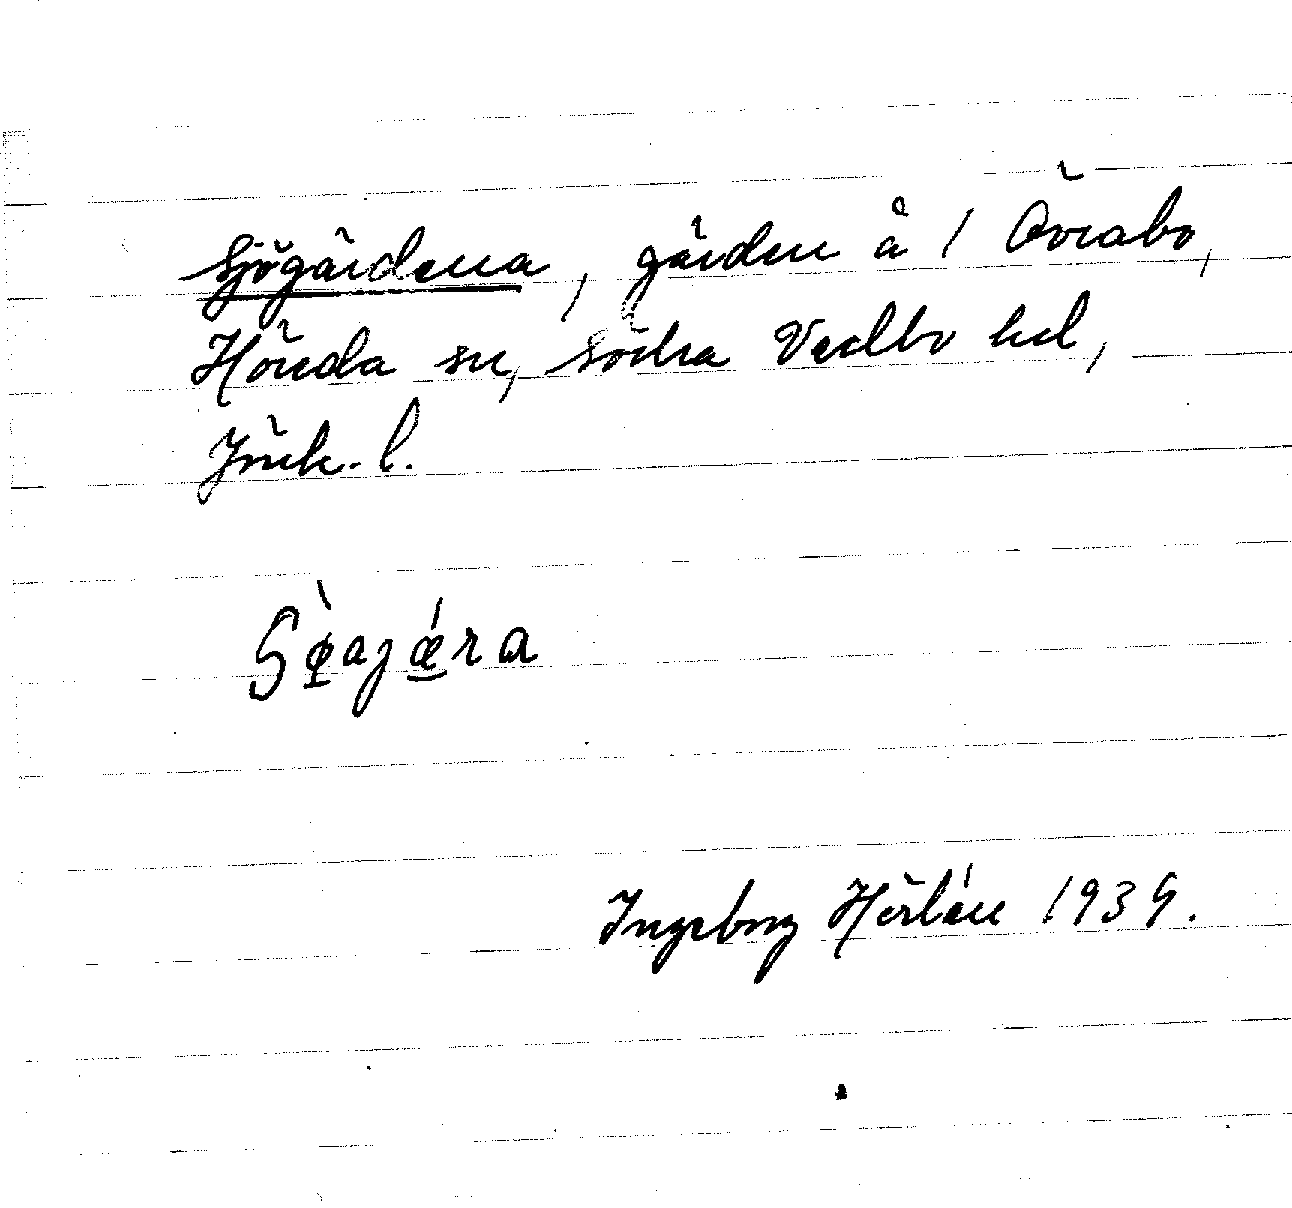 Sjögärdena, gärden å 1 Övrabo,
Höreda sn, Södra Vedbo hd,
Jönk. l.
Ingeborg Hörlén 1939.